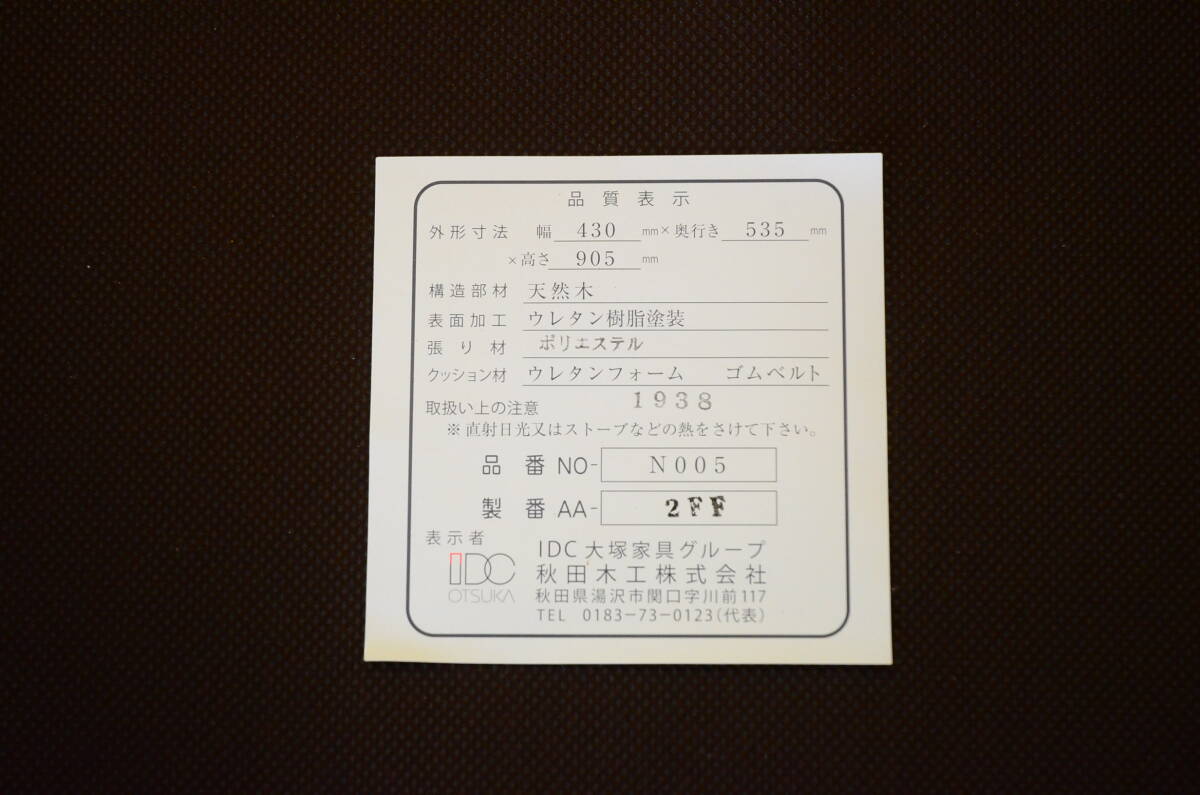 品質表示
外形寸法 幅 430 mm × 奥行き 535 mm
× 高さ 905 mm
構造部材 天然木
表面加工 ウレタン樹脂塗装
張り材 ポリエステル
クッション材 ウレタンフォーム ゴムベルト
1938
取扱い上の注意
※ 直射日光又はストーブなどの熱をさけて下さい。
品番 NO- N005
製番 AA- 2FF
表示者
IDC OTSUKA
IDC 大塚家具グループ
秋田木工株式会社
秋田県湯沢市関口字川前117
TEL 0183-73-0123(代表)